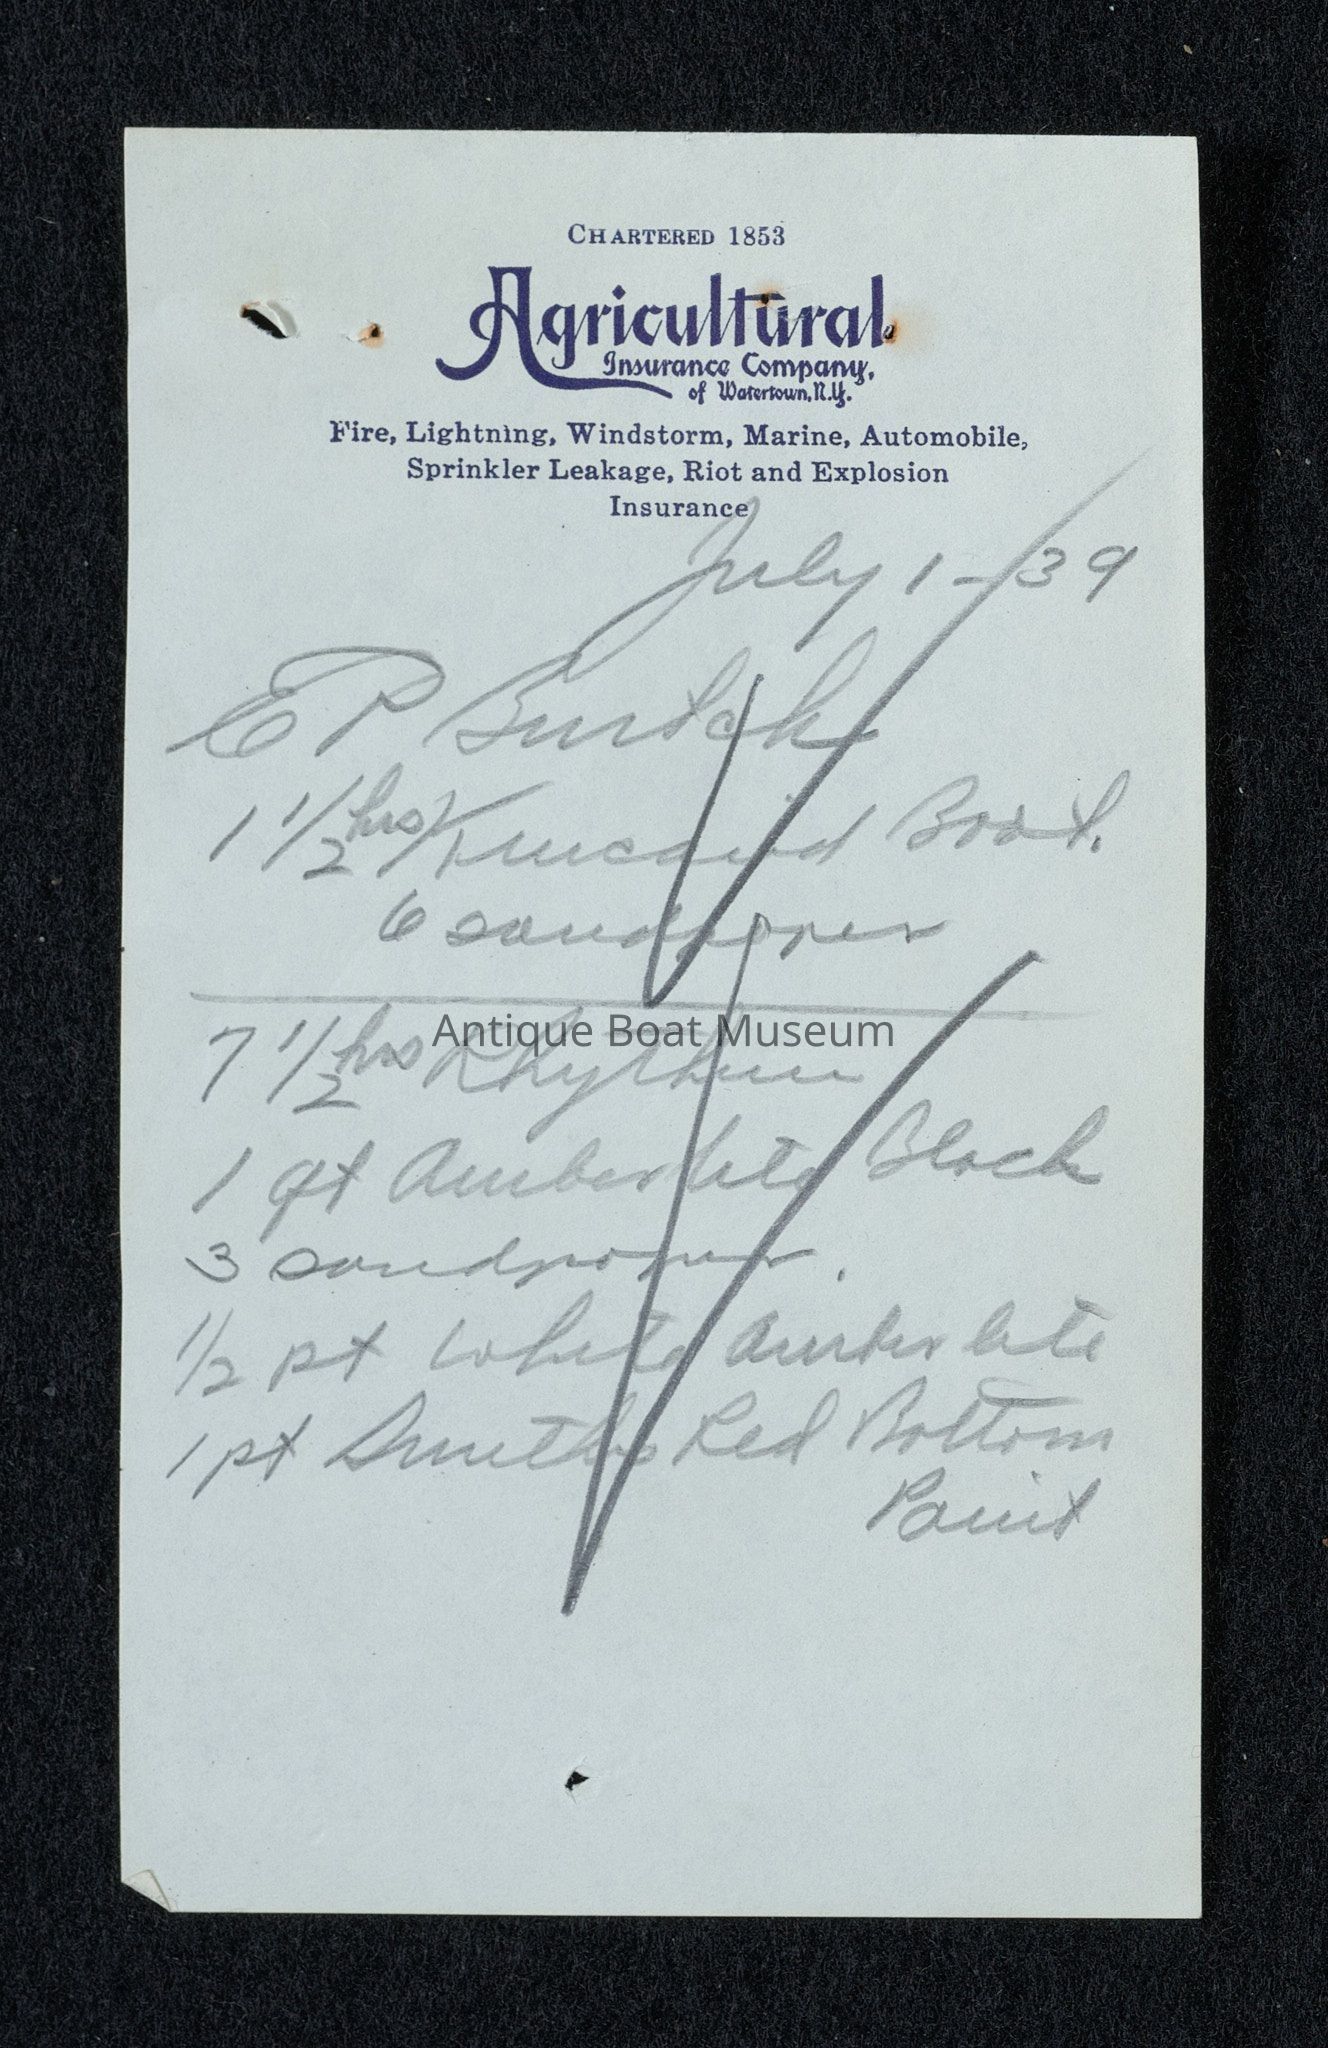 CHARTERED 1853
Agricultural
Insurance Company,
of Watertown, N.Y.
Fire, Lightning, Windstorm, Marine, Automobile,
Sprinkler Leakage, Riot and Explosion
Insurance
July 1 - 39
E P Burtch
1 1/2 hrs Kincaid Boat.
6 sandpaper
Antique Boat Museum
7 1/2 hrs Rhythm
1 qt Amberlite Black
3 sandpaper.
1/2 pt White Amberlite
1 pt Smiths Red Bottom
Paint